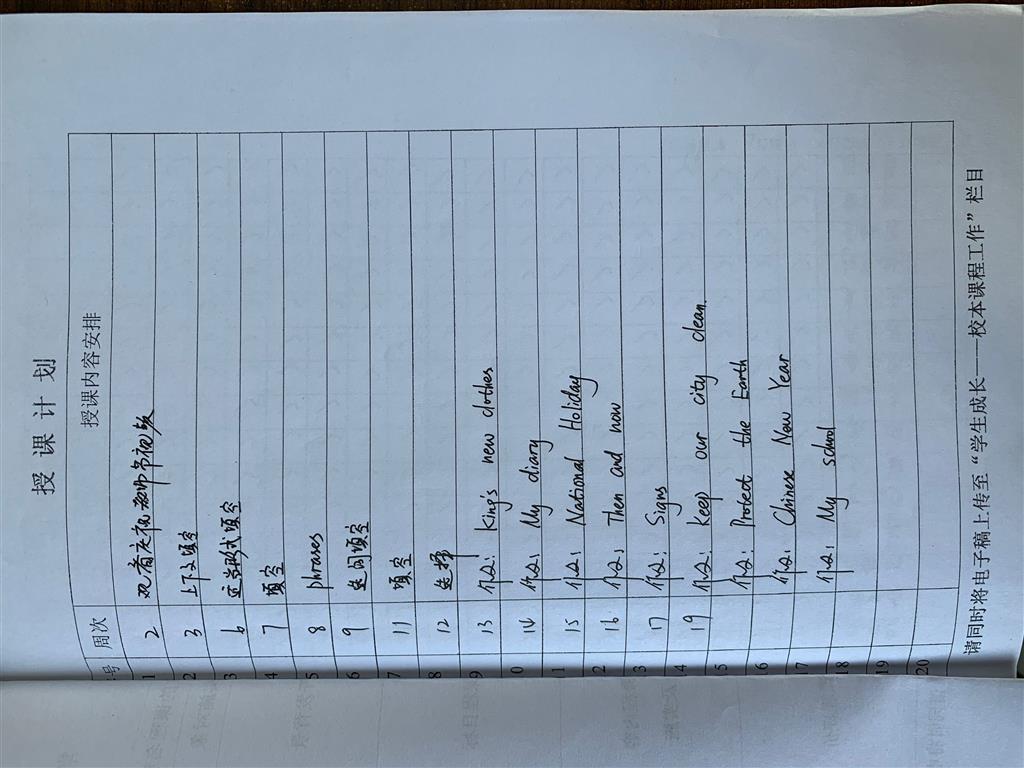 授课计划
号 周次 授课内容安排
1 2 观看庆祝教师节视频
2 3 上下文填空
3 6 适当形式填空
4 7 填空
5 8 phrases
6 9 选词填空
7 11 填空
8 12 选择
9 13 作文: King's new clothes
0 14 作文: My diary
1 15 作文: National Holiday
2 16 作文: Then and now
3 17 作文: Signs
14 19 作文: Keep our city clean.
15 作文: Protect the Earth
16 作文: Chinese New Year
17 作文: My school
18
19
20
请同时将电子稿上传至“学生成长——校本课程工作”栏目